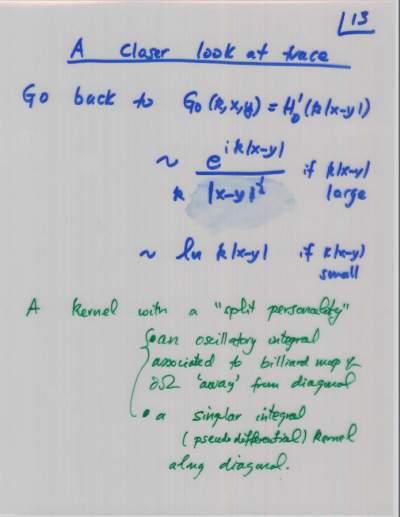 13
A closer look at trace
Go back to G₀(k,x,y) = H₀¹(k|x-y|)
~ e^{ik|x-y|} / k |x-y|^{½} if k|x-y| large
~ ln k|x-y| if k|x-y| small
A kernel with a "split personality"
• an oscillatory integral
associated to billiard map of
∂Ω 'away' from diagonal
• a singular integral
(pseudodifferential) kernel
along diagonal.